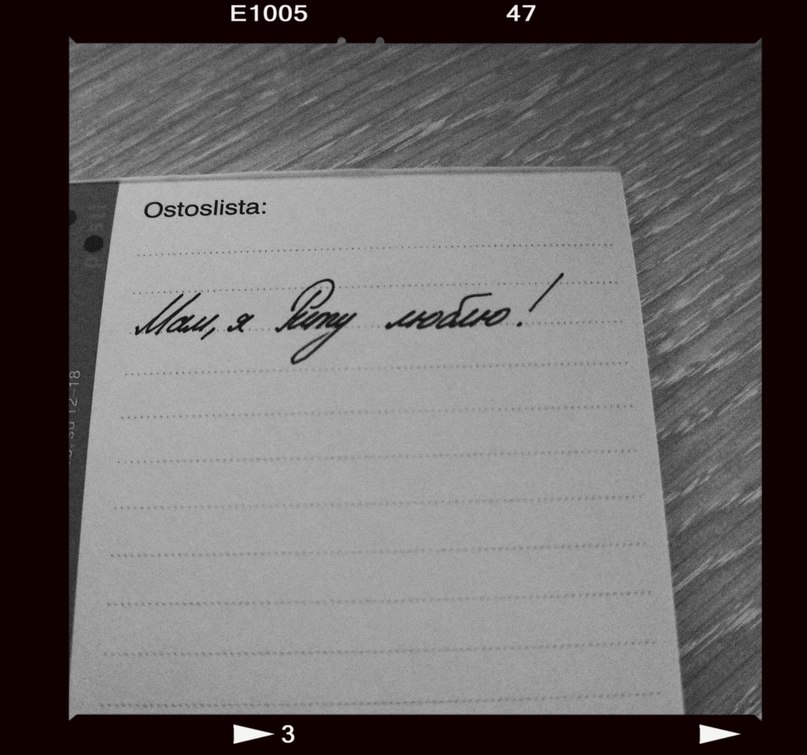 E1005 47
Ostoslista:
Мам, я Риту люблю!
12–18
3